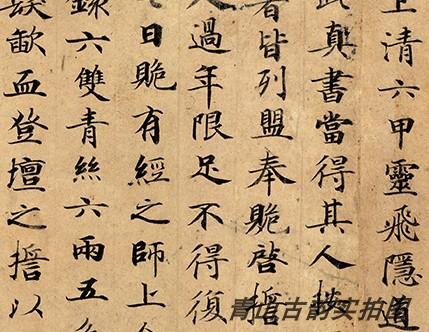 上清六甲靈飛隱道
此真書當得其人按
者皆列盟奉貺啓誓
人過年限足不得復
日貺有經之師上
六雙青絲六兩五
歃血登壇之誓以
古韵实拍图